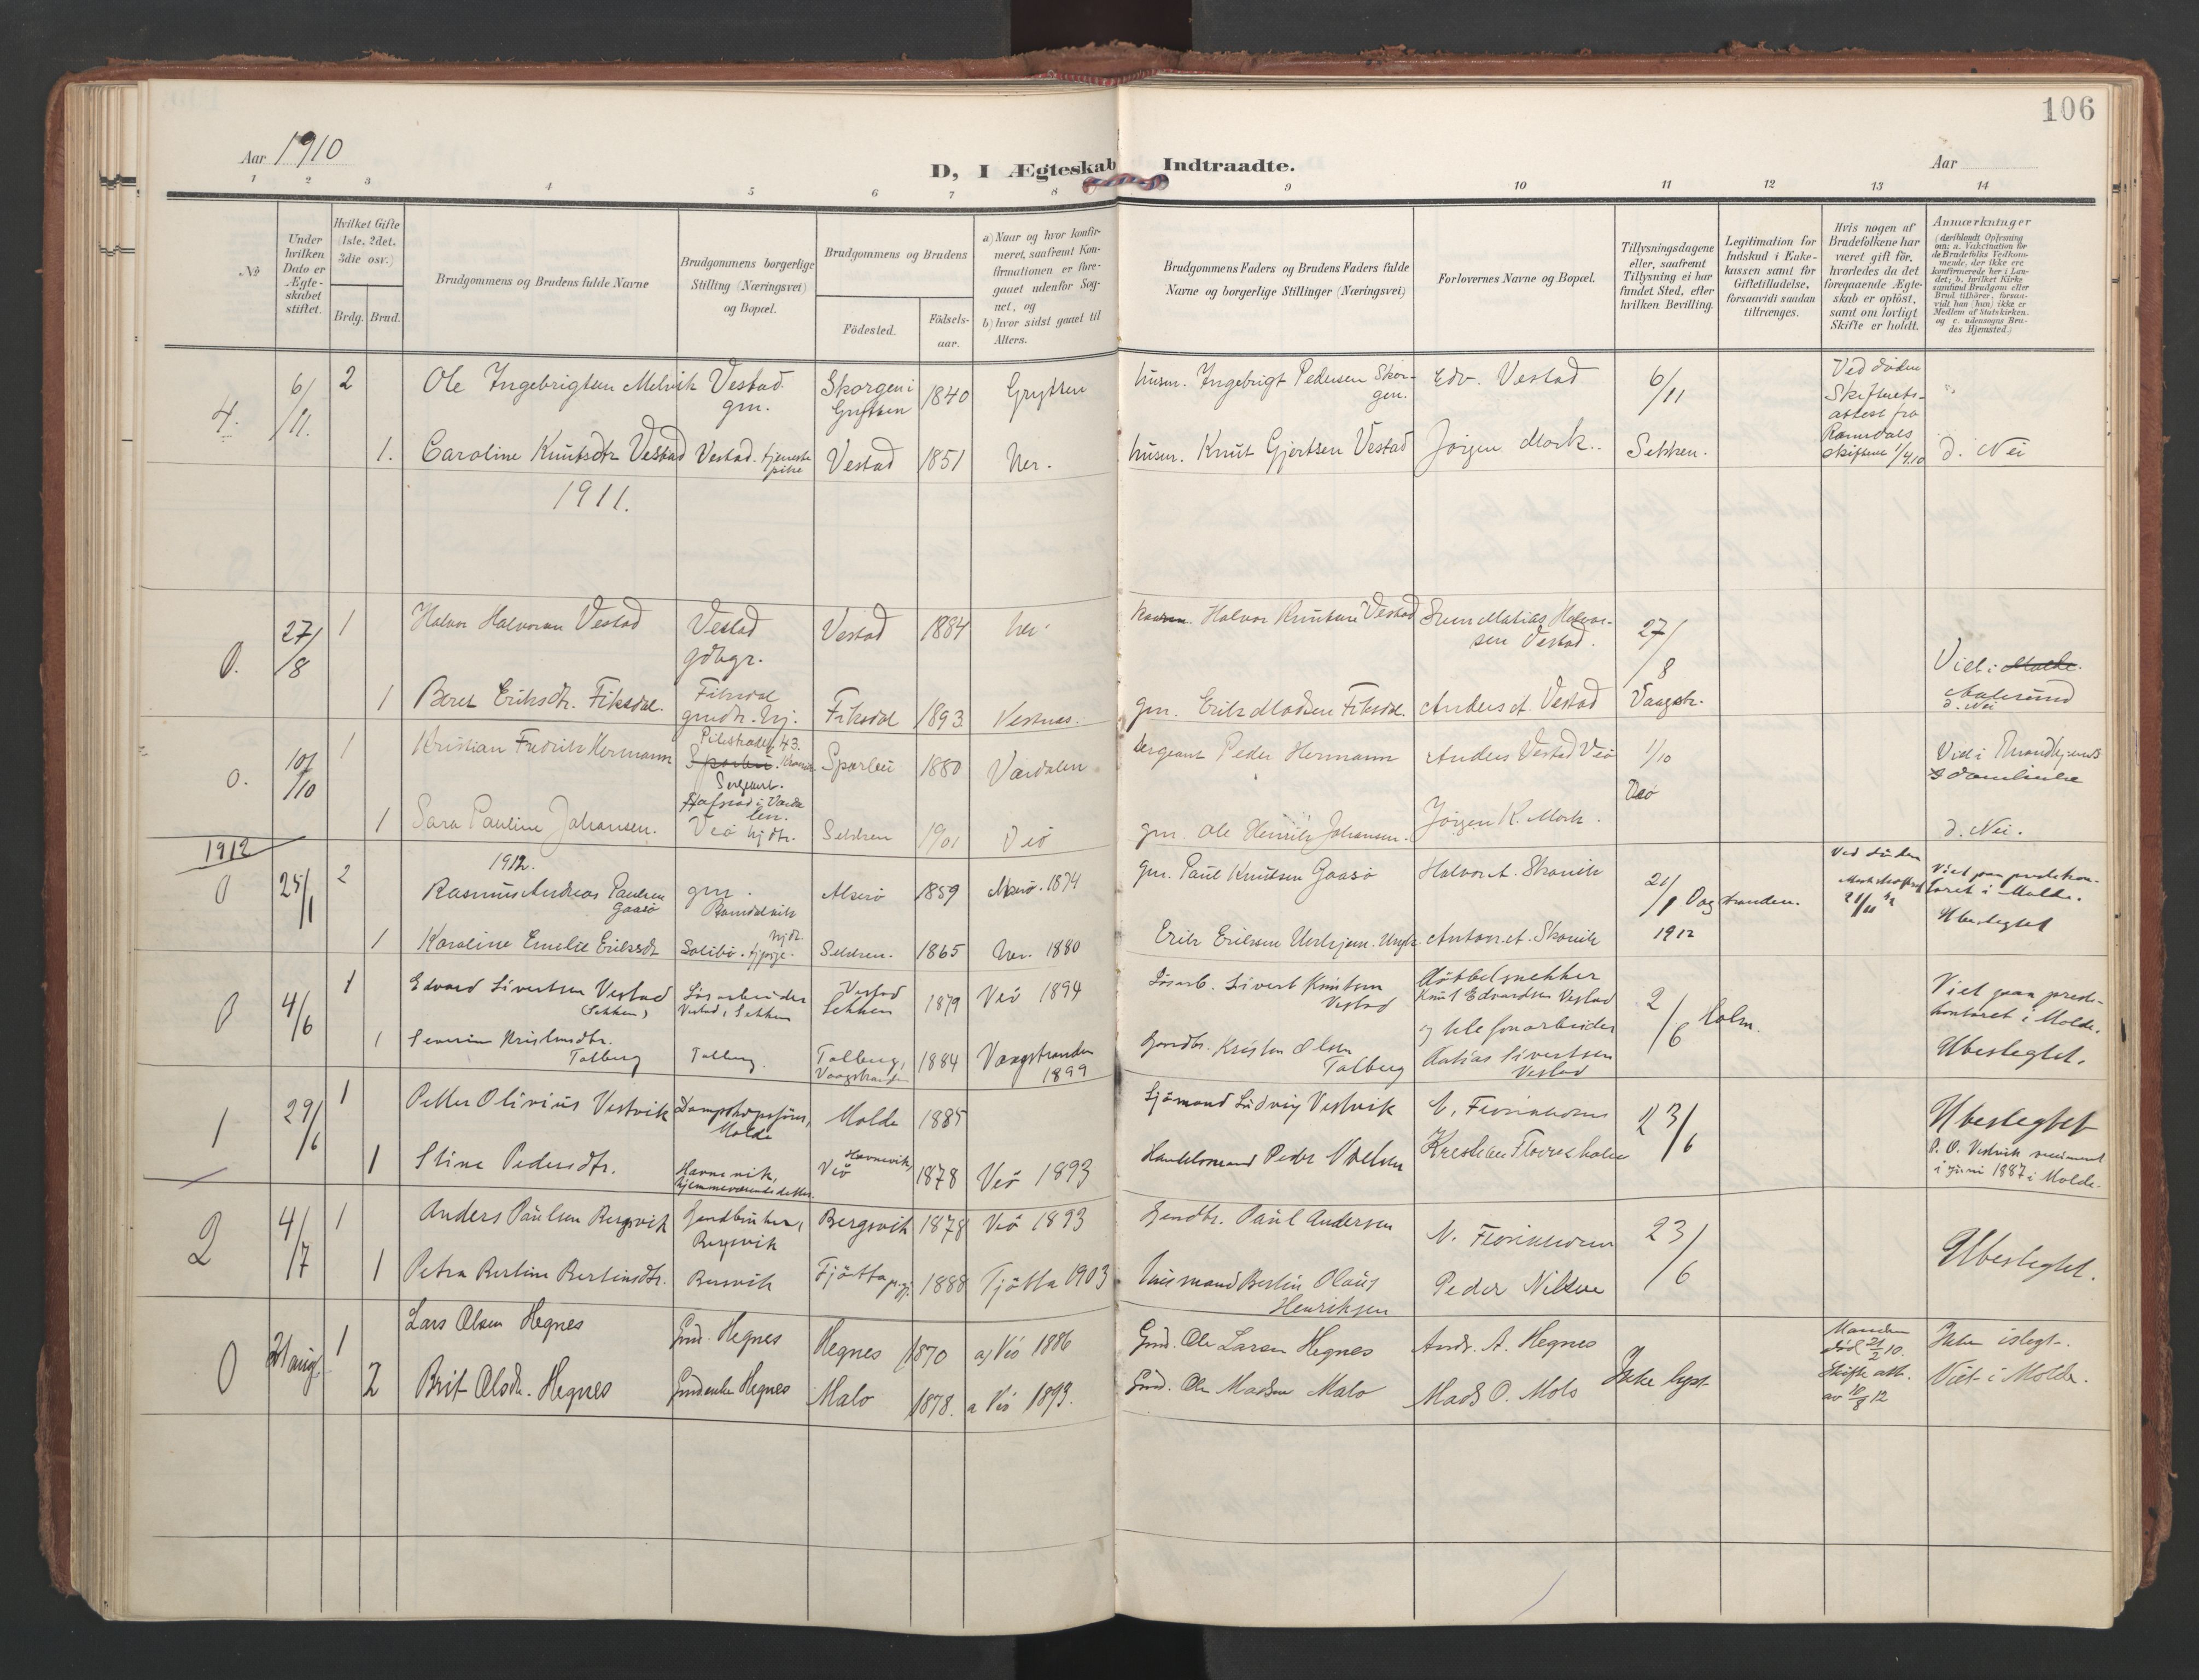 106
Aar 1910
D, I Ægteskab Indtraadte.
Aar
1 2 3 4 5 6 7 8 9 10 11 12 13 14
No
Under hvilken Dato er Ægteskabet stiftet.
Hvilket Gifte (1ste, 2det, 3die osv.)
Brdg. Brud.
Brudgommens og Brudens fulde Navne
Brudgommens borgerlige Stilling (Næringsvei) og Bopæl.
Brudgommens og Brudens
Fødested.
Fødselsaar.
a) Naar og hvor konfirmeret, saafremt Konfirmationen er foregaaet udenfor Sognet, og
b) hvor sidst gaaet til Alters.
Brudgommens Faders og Brudens Faders fulde Navne og borgerlige Stillinger (Næringsvei)
Forlovernes Navne og Bopæl.
Tillysningsdagene eller, saafremt Tillysning ei har fundet Sted, efter hvilken Bevilling.
Legitimation for Indskud i Enkekassen samt for Giftetilladelse, forsaavidt saadan tiltrænges.
Hvis nogen af Brudefolkene har været gift før, hvorledes da det foregaaende Ægteskab er opløst, samt om lovligt Skifte er holdt.
Anmærkninger (deriblandt Oplysning om: a. Vakcination for de Brudefolks Vedkommende, der ikke ere konfirmerede her i Landet; b. hvilket Kirkesamfund Brudgom eller Brud tilhører, forsaavidt han (hun) ikke er Medlem af Statskirken, og c. udensogns Brudes Hjemsted.)
4. 6/11. 2 Ole Ingebrigtsen Melvik Vestad gm. Skorgen i Grytten 1840 Grytten husm. Ingebrigt Pedersen Skorgen. Edv. Vestad 6/11 Ved døden Skifteretsattest fra Romdals skifteret 1/4.10
1. Caroline Knutsdtr Vestad Vestad. tjenestepike Vestad 1851 her. husm. Knut Gjertsen Vestad Jørgen Mork. Sekken. d. Nei
1911.
0. 27/8 1 Halvor Halvorsen Vestad Vestad gdbgr. Vestad 1884 her. Halvor Knutsen Vestad Sven Matias Halvorsen Vestad. 27/8 Viet i Molde. Aalesund
1 Beret Eriksdtr. Fiksdal. Fiksdal gmdtr. hj. Fiksdal 1893 Vestnes. gm. Erik Madsen Fiksdal. Anders A. Vestad Vaagstr. d. Nei
0. 10/10 1 Kristian Fredrik Hermann Pilestradet 43. Sparbu Sergeant. Sparbu 1880 Værdalen Sergeant Peder Hermann Anders Vestad Veø 1/10 Viet i Trondhjems Domkirke
1 Sara Pauline Johansen. Veø hjdtr. Sekken 1901 Veø gm. Ole Henrik Johansen. Jørgen K. Mork. Veø d. Nei.
1912
1912.
0 25/1 2 Rasmus Andreas Paulsen Gaasø gm. Romsdalsvik Akerø 1859 Akerø. 1874 gm. Paul Knutsen Gaasø Halvor A. Skorvik 21/1 Vaagstranden. Ved døden Viet paa prestekontoret i Molde. Ubeslegtet
1 Karoline Emelie Eriksdt Solibø. Sekken. 1865 her. 1880 Erik Eriksen Anton A. Skorvik 1912
0 4/6 1 Edvard Sivertsen Vestad (Sekken) Løsarbeider Vestad, Sekken Vestad Sekken 1879 Veø 1894 Løsarb. Sivert Knutsen Vestad Møbelsnekker Knut Edvardsen Vestad 2/6 Holm. Viet paa prestekontoret i Molde.
1 Severine Kristensdtr. Talberg Talberg Talberg, Vaagstranden 1884 Vaagstranden 1899 Gaardbr. Kristen Olsen Talberg og telefonarbeider Matias Sivertsen Vestad Ubeslegtet.
1 29/6 1 Petter Olivius Vestvik Dampskipsfører, Molde Molde 1885 Sjømand Ludvig Vestvik 23/6 Ubeslegtet
1 Stine Pedersdtr. Havnevik, hjemmeværende datter. Havnevik, Veø 1878 Veø 1893 Handelsmand Peder P. O. Vestvik i juni 1887 i Molde.
2 4/7 1 Anders Paulsen Bergsvik Gardbruker, Bergsvik Bergsvik 1878 Veø 1893 Gardbr. Paul Andersen 23/6 Ubeslegtet.
1 Petra Bertine Bertinsdtr. Bersvik Tjøtta pr.gj. 1888 Tjøtta 1903 Husmand Bertin Olaus Henriksen Peder Nilsen
0 21 aug. 1 Lars Olsen Hegnes Gmd. Hegnes Hegnes 1870 a) Veø 1886 Gmd. Ole Larsen Hegnes Andr. A. Hegnes Ikke lyst Manden død 21/2 10. Ikke i slegt.
2 Brit Olsdtr. Hegnes Gmdenke Hegnes Malo 1878. a Veø 1893. Gmd. Ole Madsen Malo Mads O. Malo Skifte att. av 10/8 12 Viet i Molde.